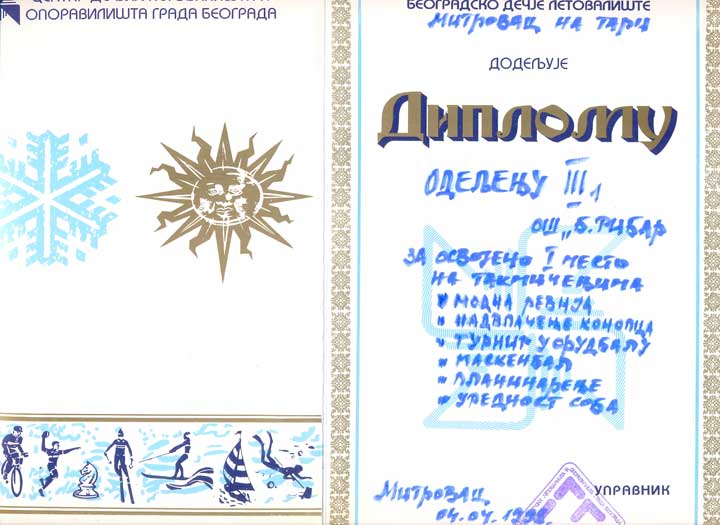 ОПОРАВИЛИШТА ГРАДА БЕОГРАДА
БЕОГРАДСКО ДЕЧЈЕ ЛЕТОВАЛИШТЕ
МИТРОВАЦ НА ТАРИ
ДОДЕЉУЈЕ
Диплому
ОДЕЉЕЊУ III1
ОШ „Б. РИБАР
ЗА ОСВОЈЕНО I МЕСТО
НА ТАКМИЧЕЊИМА
МОДНА РЕВИЈА
НАДВЛАЧЕЊЕ КОНОПЦА
ТУРНИР У ФУДБАЛУ
МАСКЕНБАЛ
ПЛАНИНАРЕЊЕ
УРЕДНОСТ СОБА
УПРАВНИК
МИТРОВАЦ
04.04.